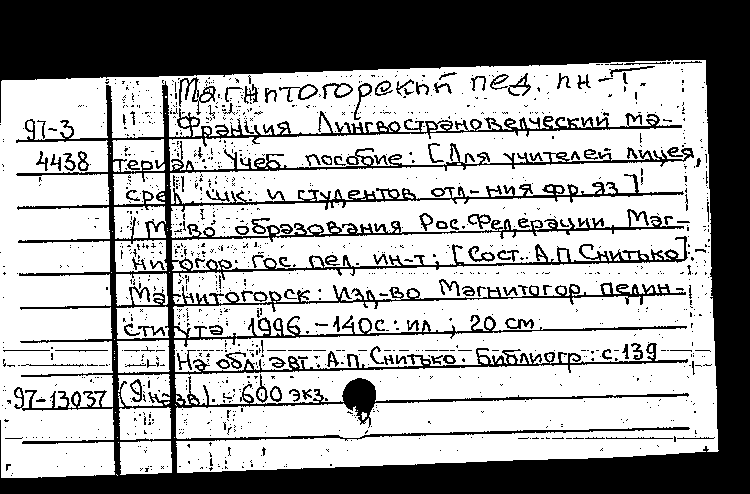 Магнитогорский пед. ин-т.
97-3 Франция. Лингвострановедческий ма-
4438 териал: Учеб. пособие: [Для учителей лицея,
сред. шк. и студентов отд-ния фр. яз]
/ М-во образования Рос. Федерации, Маг-
нитогор. гос. пед. ин-т; [Сост. А.П. Снитько]. -
Магнитогорск: Изд-во Магнитогор. педин-
ститута, 1996. - 140с.: ил.; 20 см.
На обл. авт.: А.П. Снитько. Библиогр.: с. 139
97-13037 (9 назв). - 600 экз.